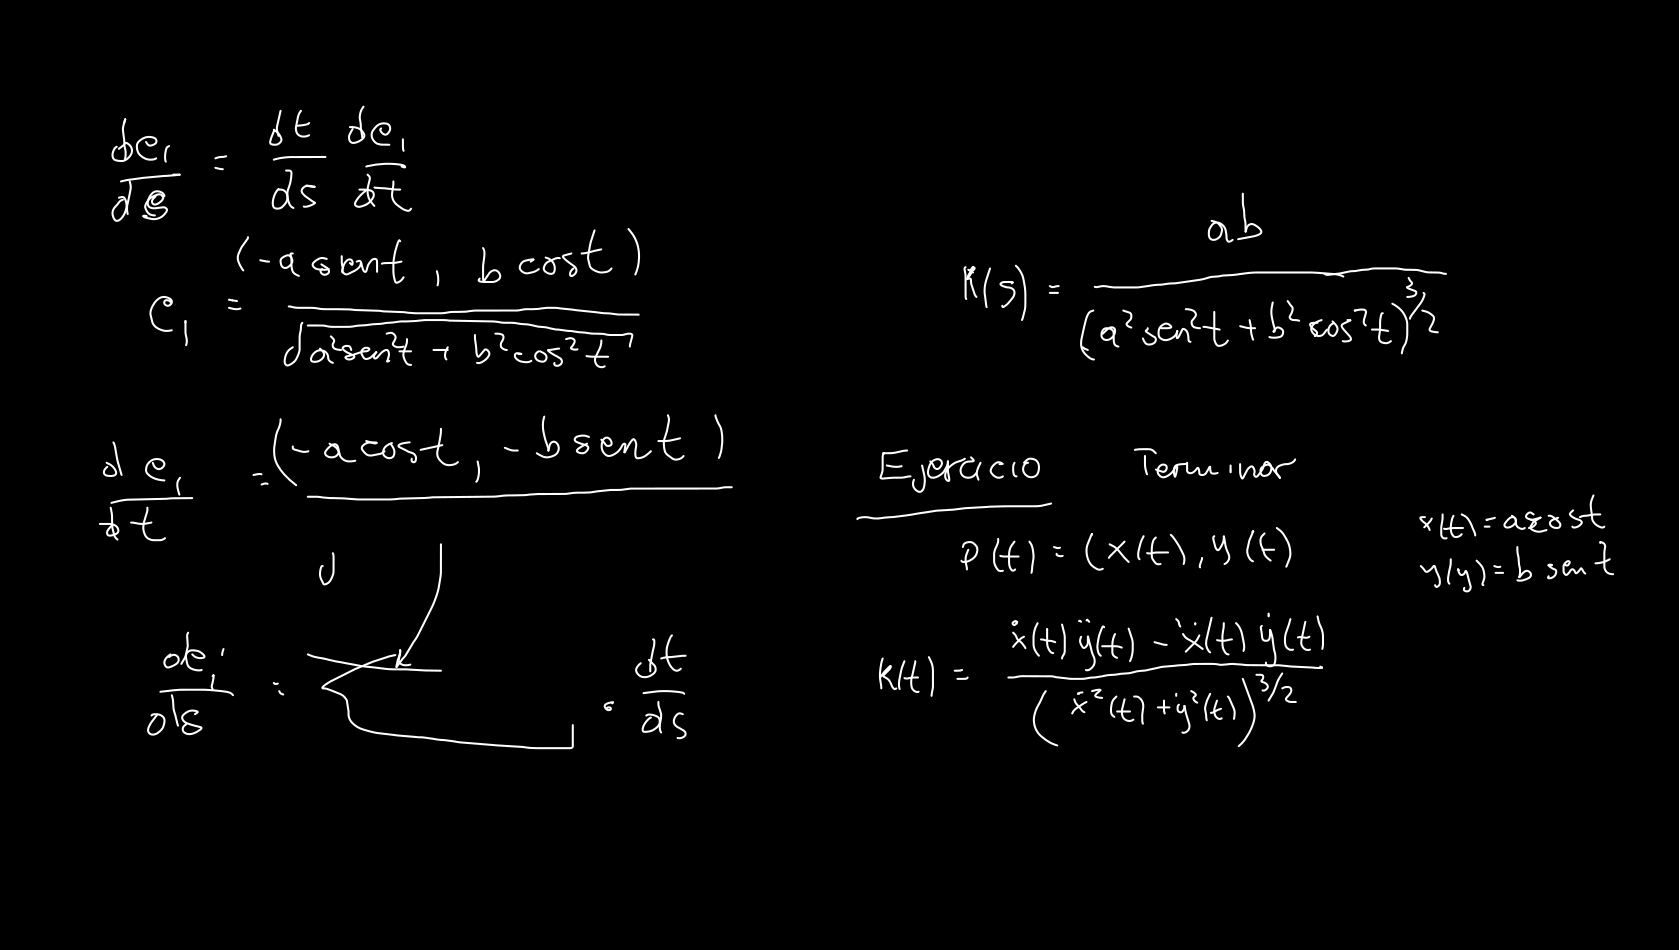 de₁/ds = dt/ds de₁/dt
e₁ = (-a sen t, b cos t) / √(a²sen²t + b²cos²t)
de₁/dt = (-a cos t, -b sen t) / √
de₁/ds = · dt/ds
K(s) = ab / (a²sen²t + b²cos²t)^3/2
Ejercicio Terminar
p(t) = (x(t), y(t)
x(t) = a cos t
y(y) = b sen t
k(t) = ẋ(t) ÿ(t) - ẍ(t) ẏ(t) / (ẋ²(t) + ẏ²(t))^3/2